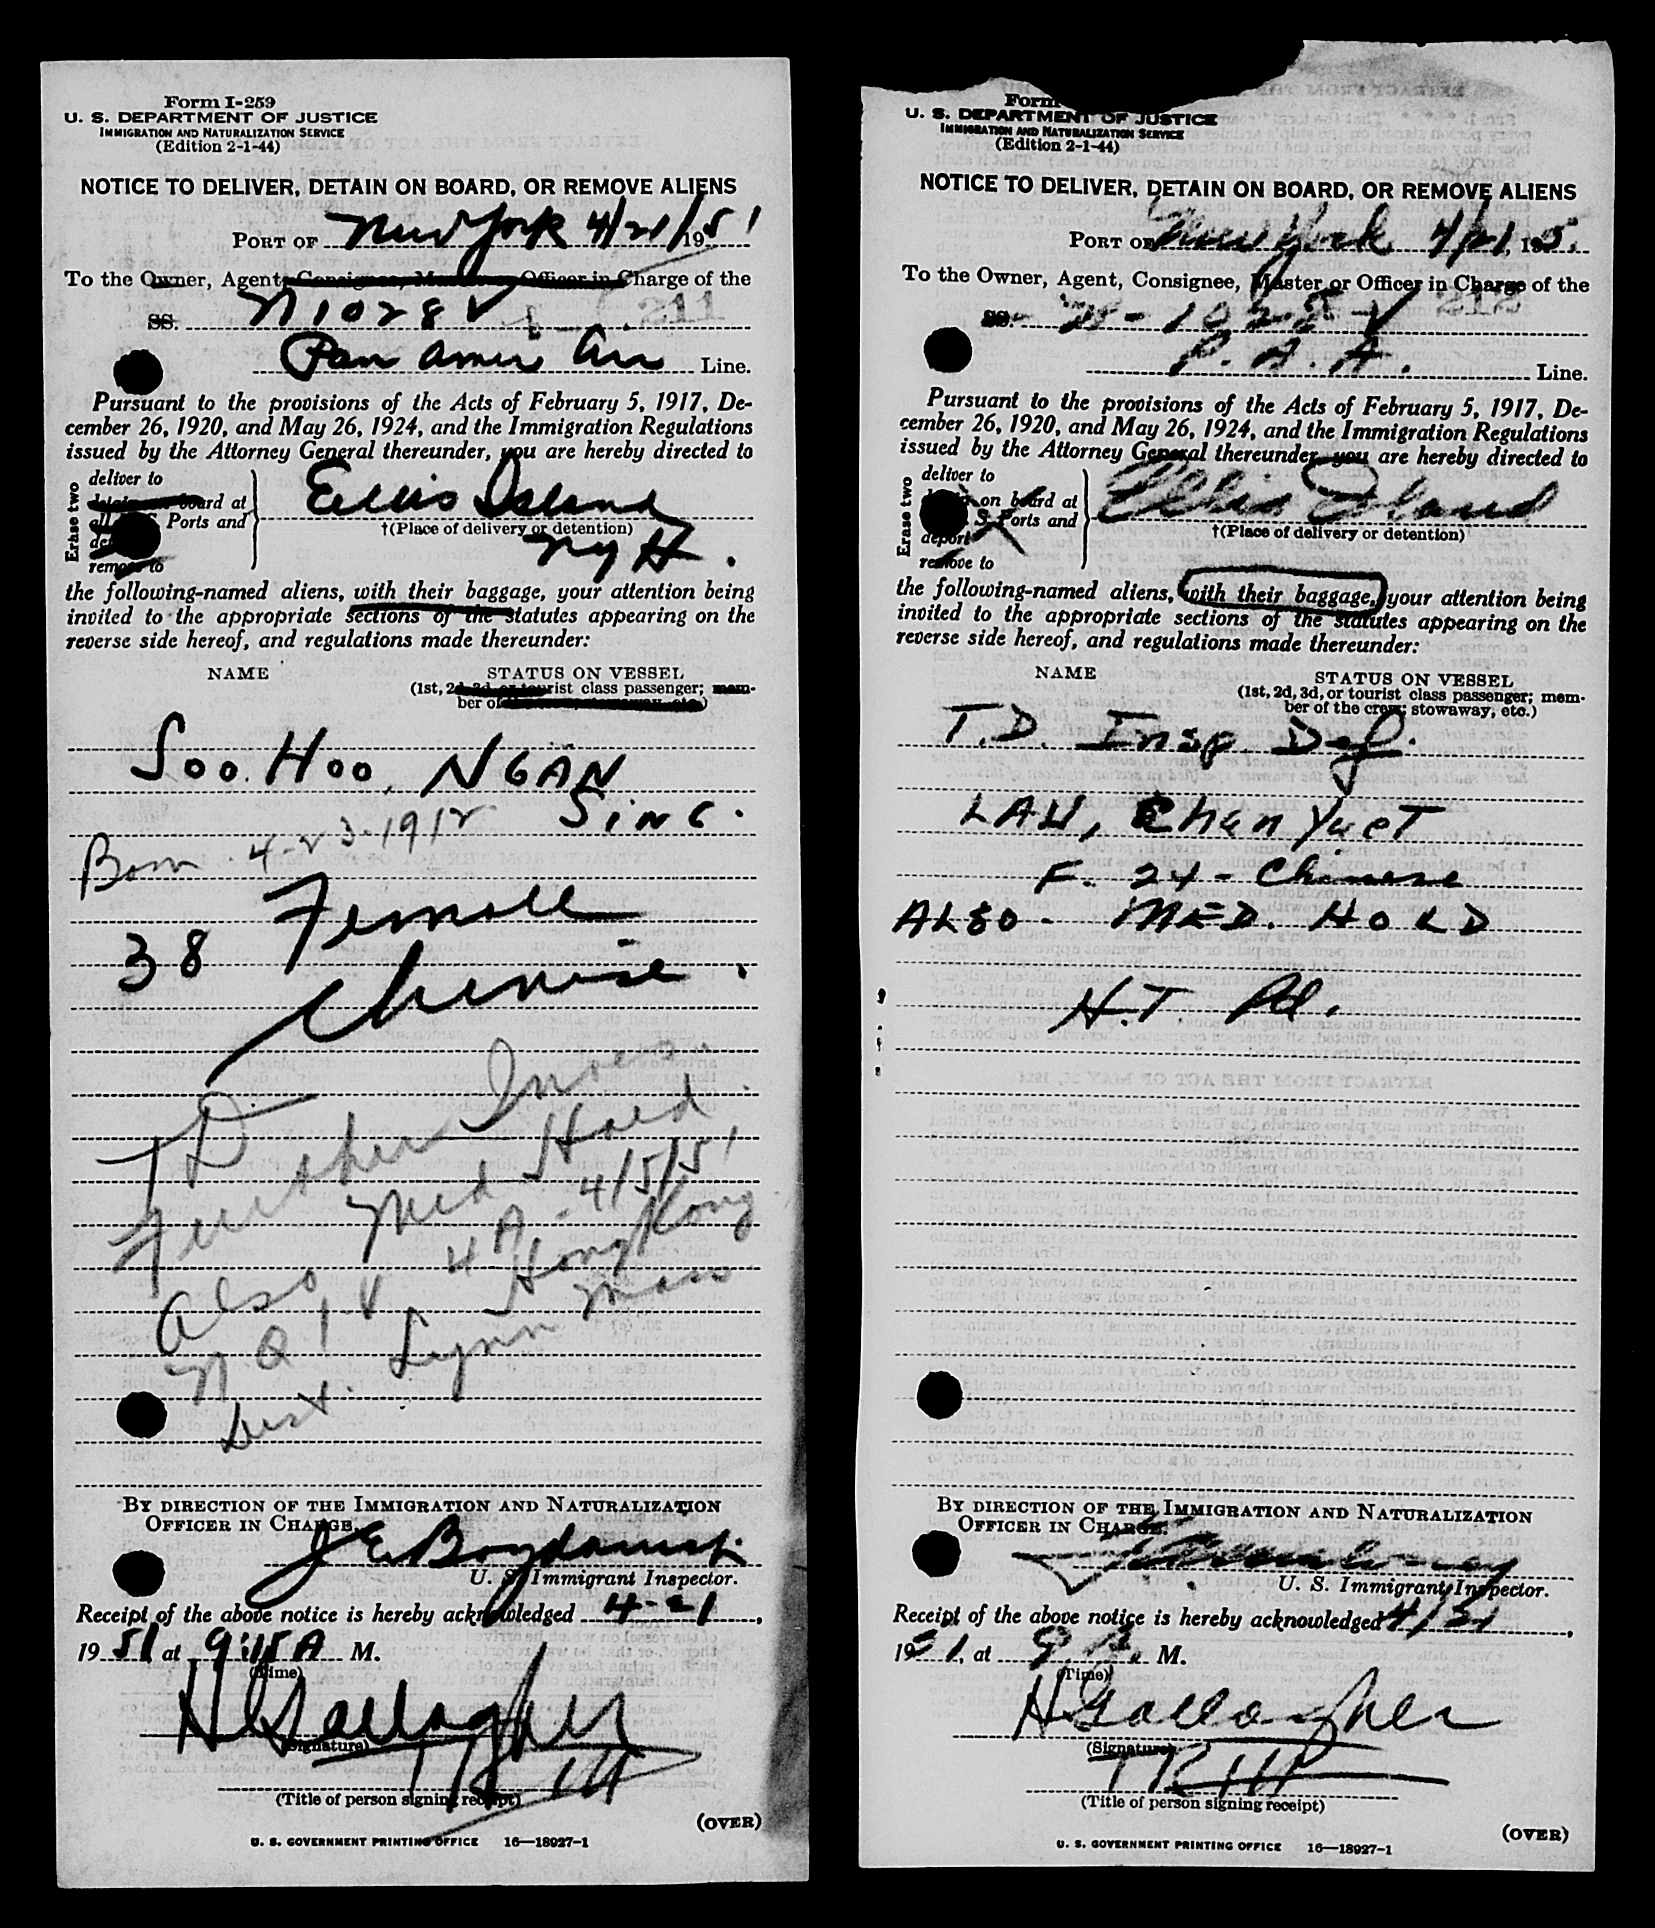 Form I-259
U. S. DEPARTMENT OF JUSTICE
IMMIGRATION AND NATURALIZATION SERVICE
(Edition 2-1-44)
NOTICE TO DELIVER, DETAIN ON BOARD, OR REMOVE ALIENS
PORT OF New York 4/21/ 1951
To the Owner, Agent, Consignee, Master or Officer in Charge of the
SS. N1028V 211
Pan Amer Air Line.
Pursuant to the provisions of the Acts of February 5, 1917, De-
cember 26, 1920, and May 26, 1924, and the Immigration Regulations
issued by the Attorney General thereunder, you are hereby directed to
Erase two
deliver to
detain on board at
all U. S. Ports and
deport
remove to
Ellis Island
†(Place of delivery or detention)
NYH.
the following-named aliens, with their baggage, your attention being
invited to the appropriate sections of the statutes appearing on the
reverse side hereof, and regulations made thereunder:
NAME STATUS ON VESSEL
(1st, 2d, 3d, or tourist class passenger; mem-
ber of the crew; stowaway, etc.)
Soo Hoo, NGAN
SiNG.
Born 4-23-1912
Female
38
Chinese.
TD
Further
Also Med Hold
NQIV 4A-4/5/51
Hong Kong
Dest. Lynn Mass
BY DIRECTION OF THE IMMIGRATION AND NATURALIZATION
OFFICER IN CHARGE.
U. S. Immigrant Inspector.
Receipt of the above notice is hereby acknowledged 4-21,
1951 at 9:15 A M.
(Time)
H Gallagher
(Signature)
(Title of person signing receipt)
(OVER)
U. S. GOVERNMENT PRINTING OFFICE 16—18927-1
Form
U. S. DEPARTMENT OF JUSTICE
IMMIGRATION AND NATURALIZATION SERVICE
(Edition 2-1-44)
NOTICE TO DELIVER, DETAIN ON BOARD, OR REMOVE ALIENS
PORT OF New York 4/21, 195
To the Owner, Agent, Consignee, Master or Officer in Charge of the
SS. N-1028V 212
P. A. A. Line.
Pursuant to the provisions of the Acts of February 5, 1917, De-
cember 26, 1920, and May 26, 1924, and the Immigration Regulations
issued by the Attorney General thereunder, you are hereby directed to
Erase two
deliver to
detain on board at
S. Ports and
deport
remove to
Ellis Island
†(Place of delivery or detention)
the following-named aliens, with their baggage, your attention being
invited to the appropriate sections of the statutes appearing on the
reverse side hereof, and regulations made thereunder:
NAME STATUS ON VESSEL
(1st, 2d, 3d, or tourist class passenger; mem-
ber of the crew; stowaway, etc.)
T.D. Insp. Def.
LAU, Chan YueT
F. 24 - Chinese
ALSO - MED. HOLD
H.T. Pd.
BY DIRECTION OF THE IMMIGRATION AND NATURALIZATION
OFFICER IN CHARGE.
U. S. Immigrant Inspector.
Receipt of the above notice is hereby acknowledged 4/21,
1951, at 9 A. M.
(Time)
H Gallagher
(Signature)
(Title of person signing receipt)
(OVER)
U. S. GOVERNMENT PRINTING OFFICE 16—18927-1